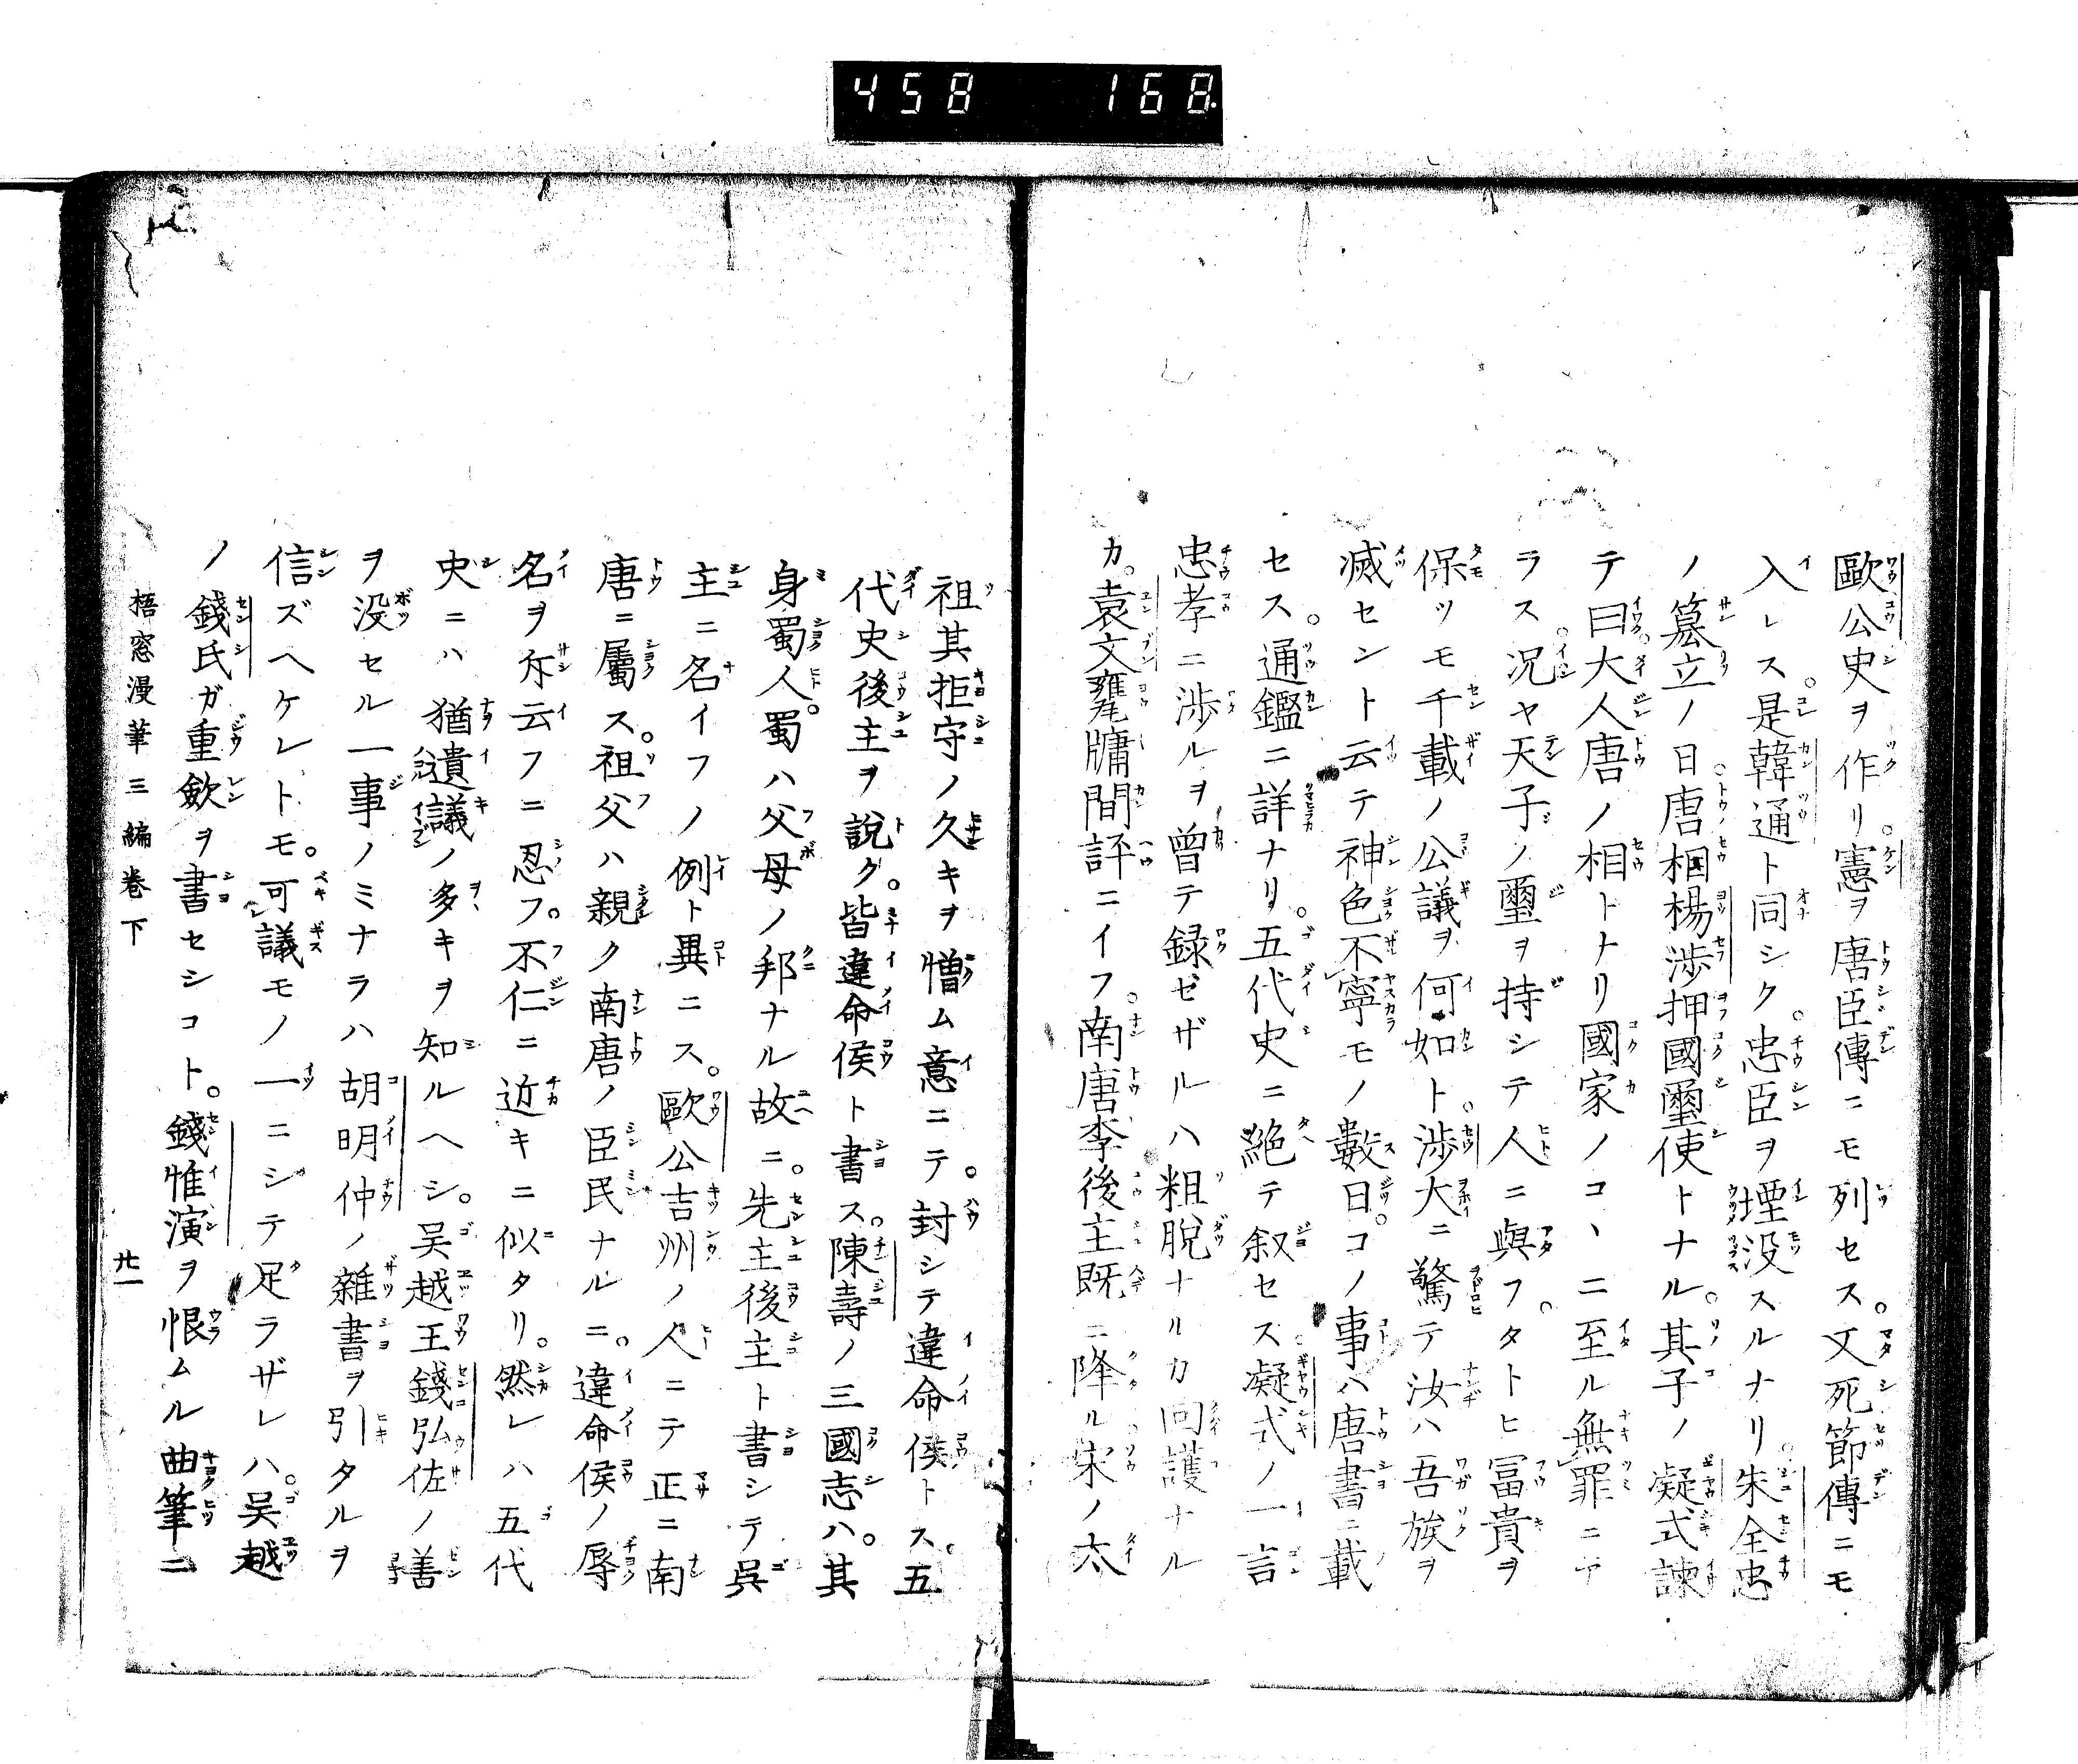 458 168
歐公史ヲ作リ憲ヲ唐臣傳ニモ列セス。又死節傳ニモ
入レス。是韓通ト同シク忠臣ヲ堙没スルナリ。朱全忠
ノ簒立ノ日。唐相楊渉押國璽使トナル。其子ノ凝式諫
テ曰。大人唐ノ相トナリ國家ノコヽニ至ル無罪ニア
ラス。況ヤ天子ノ璽ヲ持シテ人ニ與フ。タトヒ冨貴ヲ
保ツモ千載ノ公議ヲ何如ト。渉大ニ驚テ汝ハ吾族ヲ
滅セント云テ神色不寧モノ數日。コノ事ハ唐書ニ載
セス。通鑑ニ詳ナリ。五代史ニ絶テ叙セス。凝式ノ一言
忠孝ニ渉ルヲ曽テ録ゼザルハ粗脱ナルカ回護ナル
カ。袁文甕牖間評ニイフ。南唐李後主既ニ降ル。宋ノ太
祖其拒守ノ久キヲ憎ム意ニテ。封シテ違命侯トス。五
代史後主ヲ說ク。皆違命侯ト書ス。陳壽ノ三國志ハ。其
身蜀人。蜀ハ父母ノ邦ナル故ニ。先主後主ト書シテ呉
主ニ名イフノ例ト異ニス。歐公吉州ノ人ニテ正ニ南
唐ニ屬ス。祖父ハ親ク南唐ノ臣民ナルニ。違命侯ノ辱
名ヲ斥云フニ忍フ。不仁ニ近キニ似タリ。然レハ五代
史ニハ猶遺議ノ多キヲ知ルヘシ。吴越王錢弘佐ノ善
ヲ没セル一事ノミナラハ胡明仲ノ雜書ヲ引タルヲ
信ズヘケレトモ。可議モノ一ニシテ足ラザレハ。吴越
ノ錢氏ガ重斂ヲ書セシコト。錢惟演ヲ恨ムル曲筆ニ
梧窓漫筆三編卷下 廿一